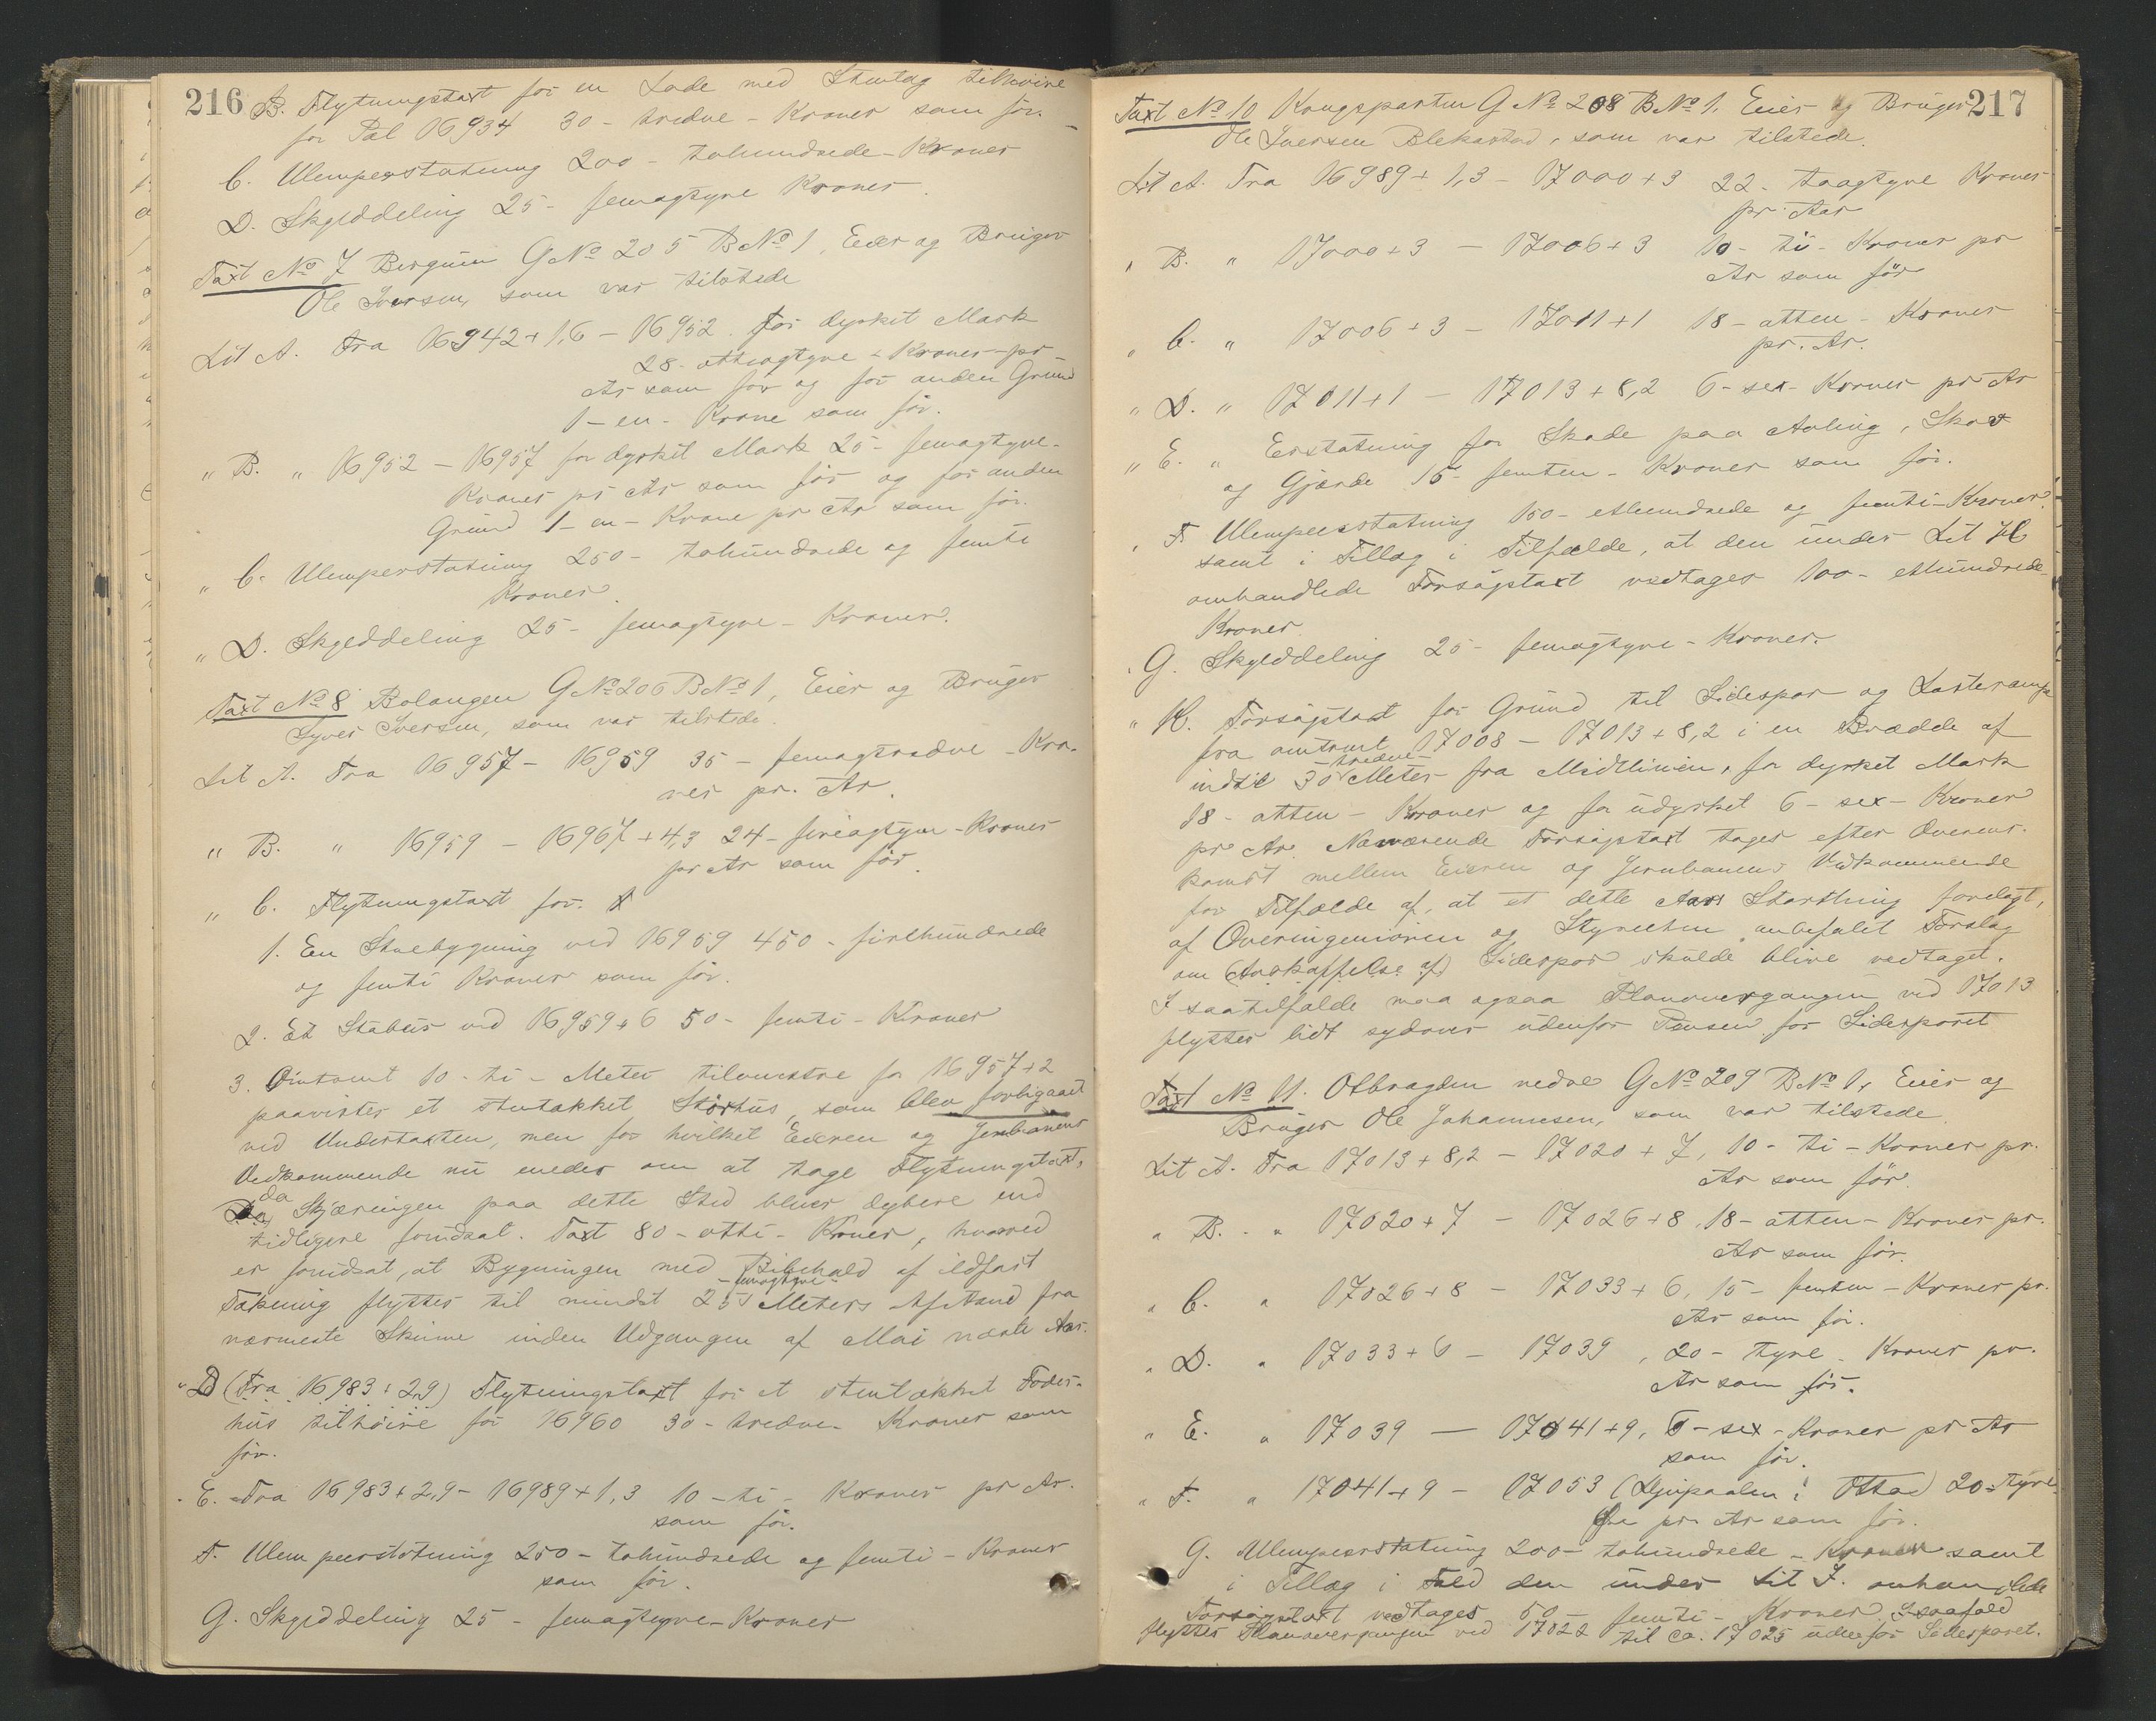 216
B. Flytningstaxt for en Lade med Stentag tilhøire
for Pæl 16934 30 - tredve - Kroner som før.
C. Ulempeerstatning 200 - tohundrede - Kroner
D. Skylddeling 25 - femogtyve Kroner.
Taxt No 7 Bergum G No 205 B No 1, Eier og Bruger
Ole Iversen, som var tilstede
Lit A. Fra 16942 + 1,6 - 16952 for dyrket Mark
28 - otteogtyve - Kroner pr
Ar som før og for anden Grund
1 - en - Krone som før.
" B. " 16952 - 16957 for dyrket Mark 25 - femogtyve -
Kroner pr Ar som før og for anden
Grund 1 - en - Krone pr Ar som før.
" C. Ulempeerstatning 250 - tohundrede og femti
Kroner.
" D. Skylddeling 25 - femogtyve - Kroner.
Taxt No 8 Bolangen G No 206 B No 1, Eier og Bruger
Syver Iversen, som var tilstede.
Lit A. Fra 16957 - 16959 35 - femogtredve - Kro-
ner pr. Ar.
" B. " 16959 - 16967 + 4,3 24 - fireogtyve - Kroner
pr Ar som før.
" C. Flytningstaxt for:
1. En Stuebygning ved 16959 450 - firehundrede
og femti Kroner som før.
2. Et Stabur ved 16959 + 6 50 - femti - Kroner
3. Omtrent 10 - ti - Meter tilvenstre for 16957 + 2
paavistes et stentækket Størhus, som blev forbigaaet
ved Undertaxten, men for hvilket Eieren og Jernbanens
Vedkommende nu enedes om at tage Flytningstaxt,
da Skjæringen paa dette Sted bliver dybere end
tidligere forudsat. Taxt 80 - otti - Kroner, hvorved
er forudsat, at Bygningen med Bibehold af ildfast
- femogtyve -
Tækning flyttes til mindst 25 Meters Afstand fra
nærmeste Skinne inden Udgangen af Mai næste Aar.
" D (Fra 16983 + 2,9) Flytningstaxt for et stentækket Foder-
hus tilhøire for 16960 30 - tredve - Kroner som
før.
" E. Fra 16983 + 2,9 - 16989 + 1,3 10 - ti - Kroner pr Ar.
som før.
F. Ulempeerstatning 250 - tohundrede og femti - Kroner
som før.
G. Skylddeling 25 - femogtyve - Kroner
217
Taxt No 10 Kongsparten G No 208 B No 1. Eier og Bruger
Ole Iversen Blekastad, som var tilstede.
Lit A. Fra 16989 + 1,3 - 17000 + 3 22 - toogtyve Kroner
pr. Aar
" B. " 17000 + 3 - 17006 + 3 10 - ti - Kroner pr
Ar som før
" C. " 17006 + 3 - 17011 + 1 18 - atten - Kroner
pr. Ar.
" D. " 17011 + 1 - 17013 + 8,2 6 - sex - Kroner pr Ar
" E. " Erstatning for Skade paa Avling, Skov
og Gjærde 15 - femten - Kroner som før.
" F. Ulempeerstatning 150 - ethundrede og femti - Kroner
samt i Tillæg i Tilfælde, at den under Lit H
omhandlede Forsøgstaxt vedtages 100 - ethundrede -
Kroner.
" G. Skylddeling 25 - femogtyve - Kroner.
" H. Forsøgstaxt for Grund til Sidespor og Lasterampe
fra omtrent 17008 - 17013 + 8,2 i en Bredde af
- tredve -
indtil 30 Meter fra Midtlinien, for dyrket Mark
18 - atten - Kroner og for udyrket 6 - sex - Kroner
pr Ar. Nærværende Forsøgstaxt tages efter Overens-
komst mellem Eieren og Jernbanens Vedkommende
for Tilfælde af, at et dette Aars Storthing forelagt,
af Overingeniøren og Styrelsen anbefalet Forslag
om (Anskaffelse af) Sidespor skulde blive vedtaget.
I saatilfælde maa ogsaa Planovergangen ved 17013
flyttes lidt sydover udenfor Pensen for Sidesporet
Taxt No 11. Olbragden nedre G No 209 B No 1, Eier og
Bruger Ole Johannesen, som var tilstede.
Lit A. Fra 17013 + 8,2 - 17020 + 7, 10 - ti - Kroner pr.
Ar som før.
" B. " 17020 + 7 - 17026 + 8, 18 - atten - Kroner pr.
Ar som før.
" C. " 17026 + 8 - 17033 + 6, 15 - femten - Kroner pr.
Ar som før.
" D. " 17033 + 6 - 17039, 20 - tyve - Kroner pr.
Ar som før.
" E. " 17039 - 17041 + 9, 6 - sex - Kroner pr Ar
som før.
" F. " 17041 + 9 - 17053 (Djupaalen i Otta) 20 - tyve
Øre pr Ar som før.
G. Ulempeerstatning 200 - tohundrede - Kroner samt
i Tillæg i Fald den under Lit I. omhandlede
Forsøgstaxt vedtages 50 - femti - Kroner. I saafald
flyttes Planovergangen ved 17022 til ca. 17025 udenfor Sidesporet.